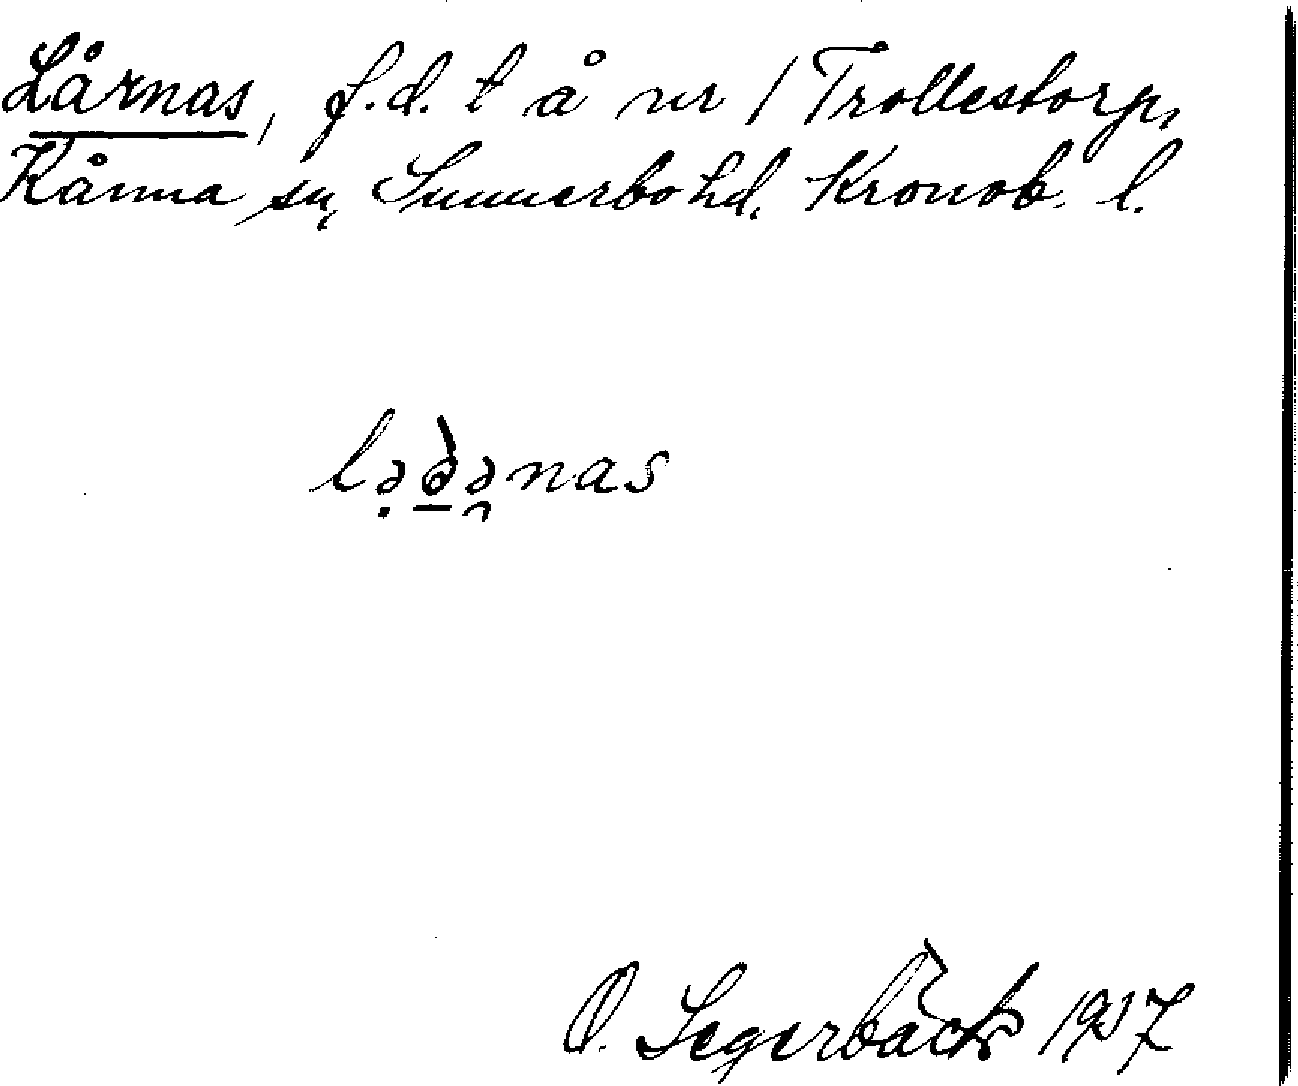 Lårnas, f.d. t å nr 1 Trollestorp,
Kånna sn, Sunnerbo hd. Kronob. l.
O. Segerbäck 1937